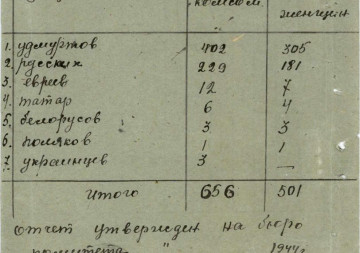 комсом. женщин
1. удмуртов 402 305
2. русских 229 181
3. евреев 12 7
4. татар 6 4
5. белорусов 3 3
6. поляков 1 1
7. украинцев 3 —
Итого 656 501
Отчет утвержден на бюро
комитета " 1944 г.